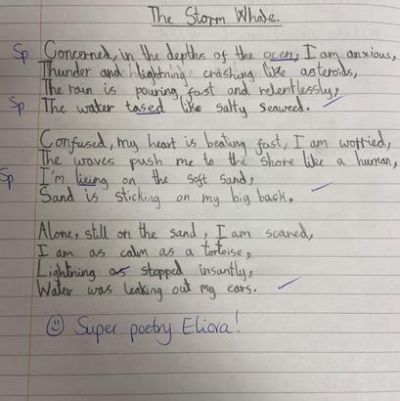 The Storm Whale.
Sp Concerned, in the depths of the ocen, I am anxious,
Thunder and lightning crashing like asteroids,
The rain is pouring fast and relentlessly,
Sp The water tased like salty seaweed.
Confused, my heart is beating fast, I am worried,
The waves push me to the shore like a human,
Sp I'm lieing on the soft sand,
Sand is sticking on my big back.
Alone, still on the sand, I am scared,
I am as calm as a tortoise,
Lightning as stopped insantly,
Water was leaking out my ears.
Super poetry Eliora!